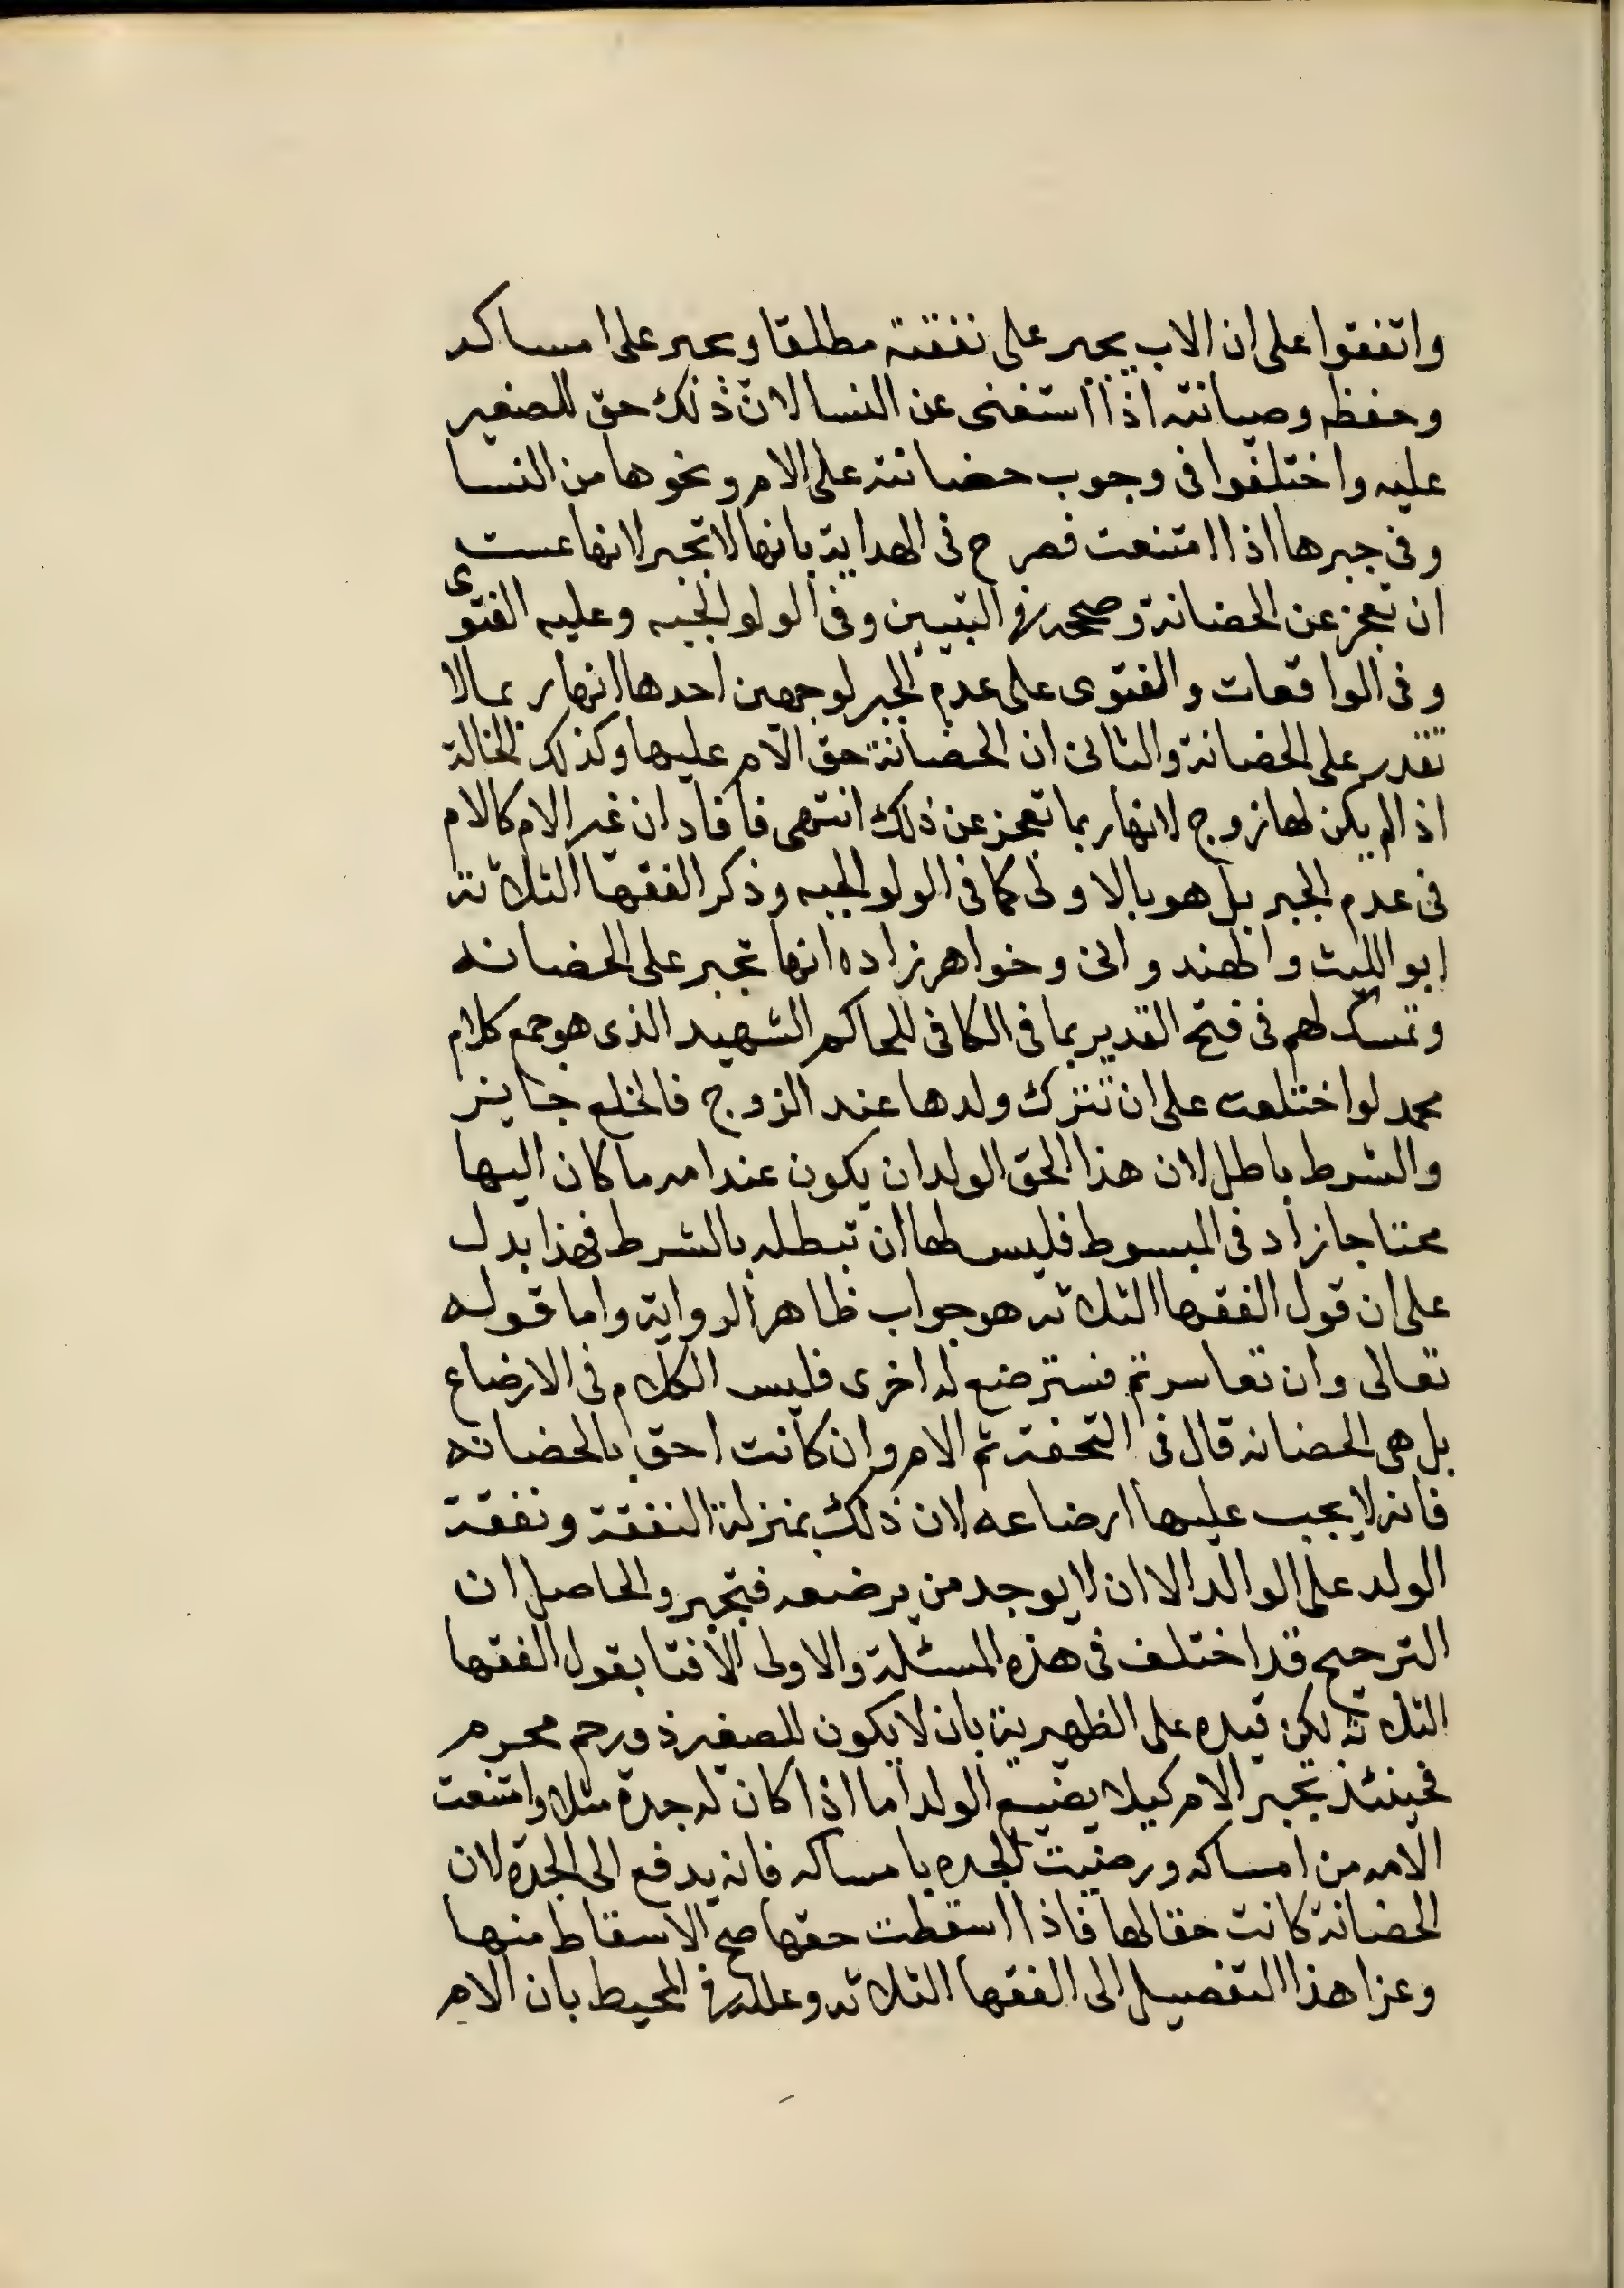 واتفقوا على ان الاب يجبر على نفقته مطلقا ويجبر على امساكه
وحفظه وصيانته اذا استغنى عن النسا لان ذلك حق للصغير
عليه واختلفوا فى وجوب حضانته على الام ونحوها من النسا
وفى جبرها اذا امتنعت فصرح فى الهداية بانها لا تجبر لانها عست
ان تعجز عن الحضانة وصححه فى التبيين وفى الولوالجيه وعليه الفتوى
وفى الواقعات والفتوى على عدم الجبر لوجهين احدها انها ربما لا
تقدر على الحضانة والثانى ان الحضانة حق الام عليها وكذلك الخالة
اذا لم يكن لها زوج لانها ربما تعجز عن ذلك انتهى فافاد ان غير الام كالام
فى عدم الجبر بل هو بالاولى كما فى الولوالجيه وذكر الفقها الثلاثة
ابو الليث والهندوانى وخواهرزاده انها تجبر على الحضانه
وتمسك لهم فى فتح القدير بما فى الكافى للحاكم الشهيد الذى هو جمع كلام
محمد لو اختلعت على ان تترك ولدها عند الزوج فالخلع جايز
والشرط باطل لان هذا الحق الولد ان يكون عند امه ما كان اليها
محتاجا زاد فى المبسوط فليس لها ان تبطله بالشرط فهذا يدل
على ان قول الفقها الثلاثه هو جواب ظاهر الرواية واما قوله
تعالى وان تعاسرتم فسترضع له اخرى فليس الكلام فى الارضاع
بل هى الحضانه قال فى التحفة ثم الام وان كانت احق بالحضانه
فانه لا يجب عليها ارضاعه لان ذلك بمنزلة النفقة ونفقة
الولد على الوالد الا ان لا يوجد من يرضعه فتجبر والحاصل ان
الترجيح قد اختلف فى هذه المسئلة والاولى الافتا بقول الفقها
الثلاثة لكن قيده على الظهيرية بان لا يكون للصغير ذو رحم محرم
فحينئذ تجبر الام كيلا يضيع الولد اما اذا كان له جدة مثلا وامتنعت
الامه من امساكه ورضيت الجده بامساكه فانه يدفع الى الجدة لان
الحضانة كانت حقا لها فاذا اسقطت حقها صح الاسقاط منها
وعزا هذا التفصيل الى الفقها الثلاثه وعلله فى المحيط بان الام